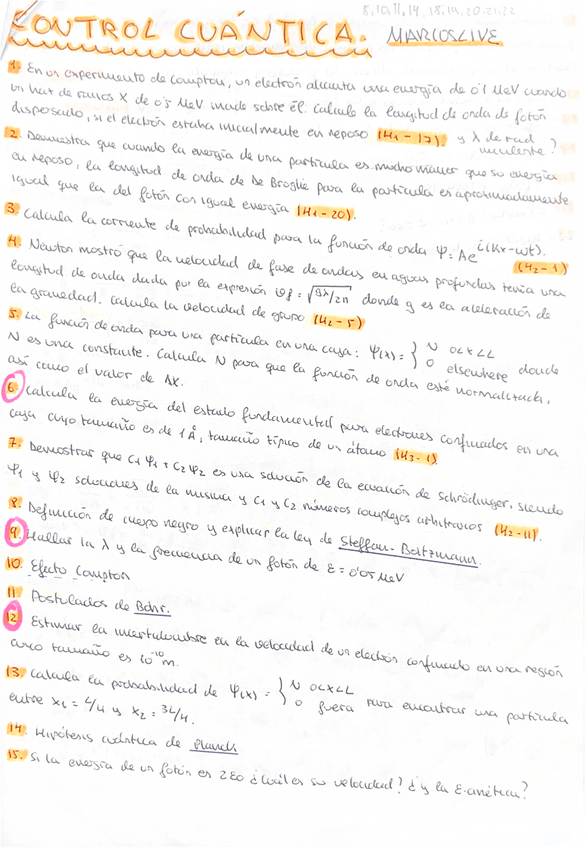 8,10,11,14,18,19,20,21,22
CONTROL CUÁNTICA. MARIOSLIVE
1. En un experimento de Compton, un electrón alcanza una energía de 0'1 MeV cuando
un haz de rayos X de 0'5 MeV incide sobre él. Calcula la longitud de onda de fotón
dispersado, si el electrón estaba inicialmente en reposo (H1-17). y λ de rad
incidente?
2. Demuestra que cuando la energía de una partícula es mucho mayor que su energía
en reposo, la longitud de onda de De Broglie para la partícula es aproximadamente
igual que la del fotón con igual energía (H1-20).
3. Calcula la corriente de probabilidad para la función de onda ψ = Ae^i(Kx-wt).
(H2-1)
4. Newton mostró que la velocidad de fase de ondas en aguas profundas tenía una
longitud de onda dada por la expresión vf = √gλ/2π donde g es la aceleración de
la gravedad. Calcula la velocidad de grupo (H2-5)
5. La función de onda para una partícula en una caja: ψ(x) = { N 0<x<L
0 elsewhere donde
N es una constante. Calcula N para que la función de onda esté normalizada,
así como el valor de Δx.
6. Calcula la energía del estado fundamental para electrones confinados en una
caja cuyo tamaño es de 1 Å, tamaño típico de un átomo (H3-1).
7. Demostrar que C1 ψ1 + C2 ψ2 es una solución de la ecuación de Schrödinger, siendo
ψ1 y ψ2 soluciones de la misma y C1 y C2 números complejos arbitrarios (H2-11).
8. Definición de cuerpo negro y explicar la ley de Steffan-Boltzmann.
9. Hallar la λ y la frecuencia de un fotón de E = 0'05 MeV
10. Efecto Compton
11 Postulados de Bohr.
12 Estimar la incertidumbre en la velocidad de un electrón confinado en una región
cuyo tamaño es 10^-10 m.
13. Calcula la probabilidad de ψ(x) = { N 0<x<L
0 fuera para encontrar una partícula
entre x1 = L/4 y x2 = 3L/4.
14. Hipótesis cuántica de Planck
15. Si la energía de un fotón es 2E0 ¿cuál es su velocidad? ¿y la E.cinética?